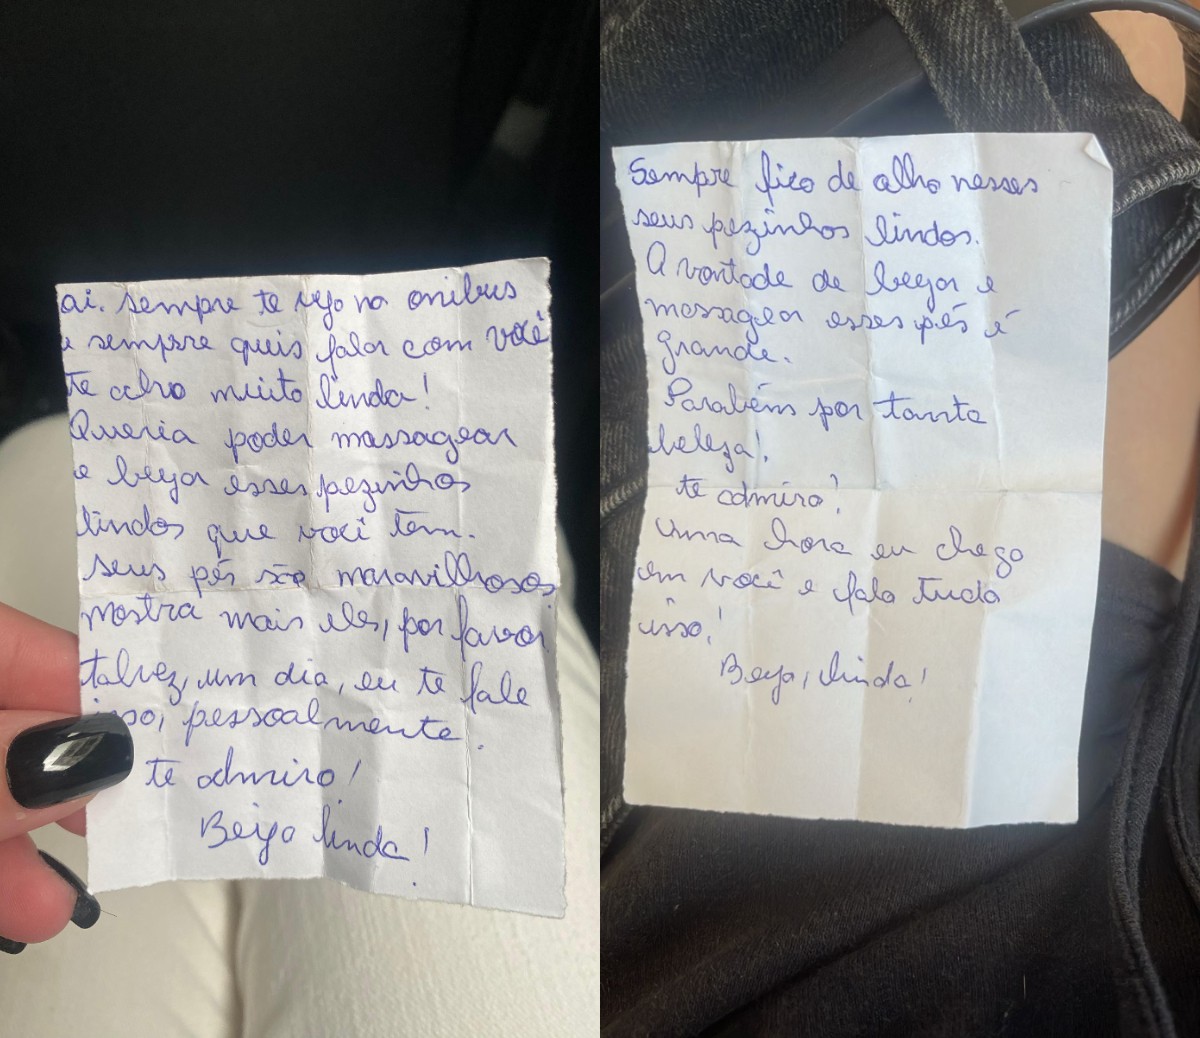 oi. sempre te vejo no onibus
e sempre quis falar com você
te acho muito linda!
Queria poder massagear
e beijar esses pezinhos
lindos que você tem.
seus pés são maravilhosos
mostra mais eles, por favor
talvez, um dia, eu te fale
isso, pessoalmente.
te admiro!
Beijo linda!
Sempre fico de olho nesses
seus pezinhos lindos.
A vontade de beijar e
massagear esses pés é
grande.
Parabéns por tanta
beleza!
te admiro!
uma hora eu chego
em você e falo tudo
isso!
Beijo, linda!